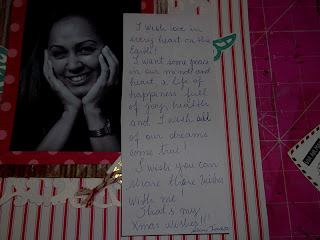 I wish love in
every heart on this
Earth!
I want some peace
in our minds and
heart, a life of
happiness full
of joy, health
and I wish all
of our dreams
come true!
I wish you can
share these wishes
with me!
That's my
Xmas wishes!!!